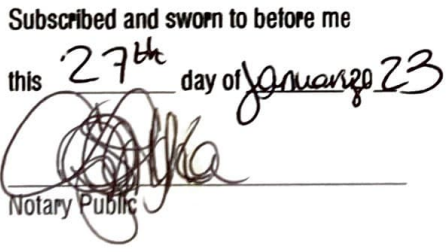 Subscribed and sworn to before me
this 27th day of January 2023
Notary Public